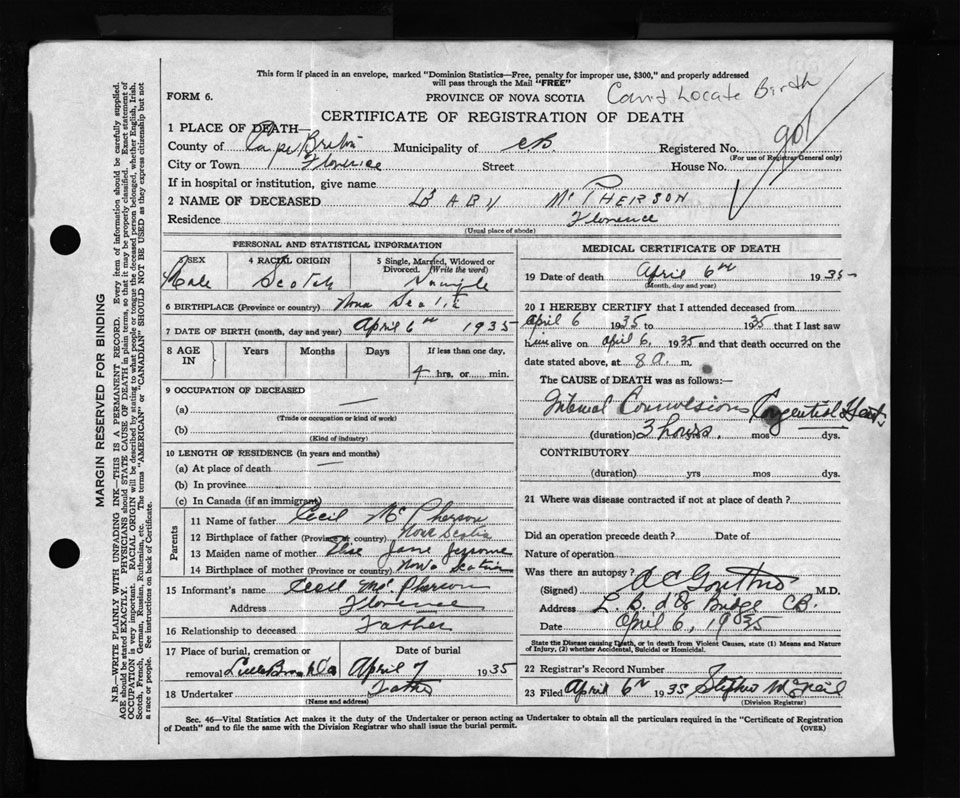 This form if placed in an envelope, marked "Dominion Statistics—Free, penalty for improper use, $300," and properly addressed
will pass through the Mail "FREE"
FORM 6.
PROVINCE OF NOVA SCOTIA
Cant Locate Birth
CERTIFICATE OF REGISTRATION OF DEATH
1 PLACE OF DEATH—
County of Cape Breton Municipality of C.B. Registered No.
(For use of Registrar General only)
City or Town Florence Street House No.
If in hospital or institution, give name
2 NAME OF DECEASED BABY McPHERSON
Residence Florence
(Usual place of abode)
PERSONAL AND STATISTICAL INFORMATION
3 SEX 4 RACIAL ORIGIN 5 Single, Married, Widowed or
Divorced. (Write the word)
Male Scotch
6 BIRTHPLACE (Province or country) Nova Scotia
7 DATE OF BIRTH (month, day and year) April 6th 1935
8 AGE IN Years Months Days If less than one day,
4 hrs. or min.
9 OCCUPATION OF DECEASED —
(a)
(Trade or occupation or kind of work)
(b)
(Kind of industry)
10 LENGTH OF RESIDENCE (in years and months)
(a) At place of death —
(b) In province
(c) In Canada (if an immigrant)
Parents
11 Name of father Cecil McPherson
12 Birthplace of father (Province or country) Nova Scotia
13 Maiden name of mother Jane
14 Birthplace of mother (Province or country) Nova Scotia
15 Informant's name Cecil McPherson
Address Florence
16 Relationship to deceased Father
17 Place of burial, cremation or Date of burial
removal April 7 1935
18 Undertaker Father
(Name and address)
MEDICAL CERTIFICATE OF DEATH
19 Date of death April 6th 1935
(Month, day and year)
20 I HEREBY CERTIFY that I attended deceased from
April 6 1935 to 1935 that I last saw
him alive on April 6, 1935 and that death occurred on the
date stated above, at 8 a. m.
The CAUSE of DEATH was as follows:—
Internal Convulsions Congenital Heart
(duration) 3 hours. yrs mos dys.
CONTRIBUTORY
(duration) yrs mos dys.
21 Where was disease contracted if not at place of death?
Did an operation precede death? Date of
Nature of operation
Was there an autopsy?
(Signed) M.D.
Address Bridge C.B.
Date April 6, 1935
State the Disease causing Death, or in death from Violent Causes, state (1) Means and Nature
of Injury, (2) whether Accidental, Suicidal or Homicidal.
22 Registrar's Record Number
23 Filed April 6th 1935 Stephen McNeil
(Division Registrar)
Sec. 46—Vital Statistics Act makes it the duty of the Undertaker or person acting as Undertaker to obtain all the particulars required in the "Certificate of Registration
of Death" and to file the same with the Division Registrar who shall issue the burial permit. (OVER)
MARGIN RESERVED FOR BINDING
N.B.—WRITE PLAINLY WITH UNFADING INK—THIS IS A PERMANENT RECORD. Every item of information should be carefully supplied.
AGE should be stated EXACTLY. PHYSICIANS should STATE CAUSE OF DEATH in plain terms, so that it may be properly classified. Exact statement of
OCCUPATION is very important. RACIAL ORIGIN will be described by stating to what people or tongue the deceased person belonged, whether English, Irish,
Scotch, French, German, Russian, Ruthenian, etc. The terms "AMERICAN" or "CANADIAN" SHOULD NOT BE USED as they express citizenship but not
a race or people. See instructions on back of Certificate.